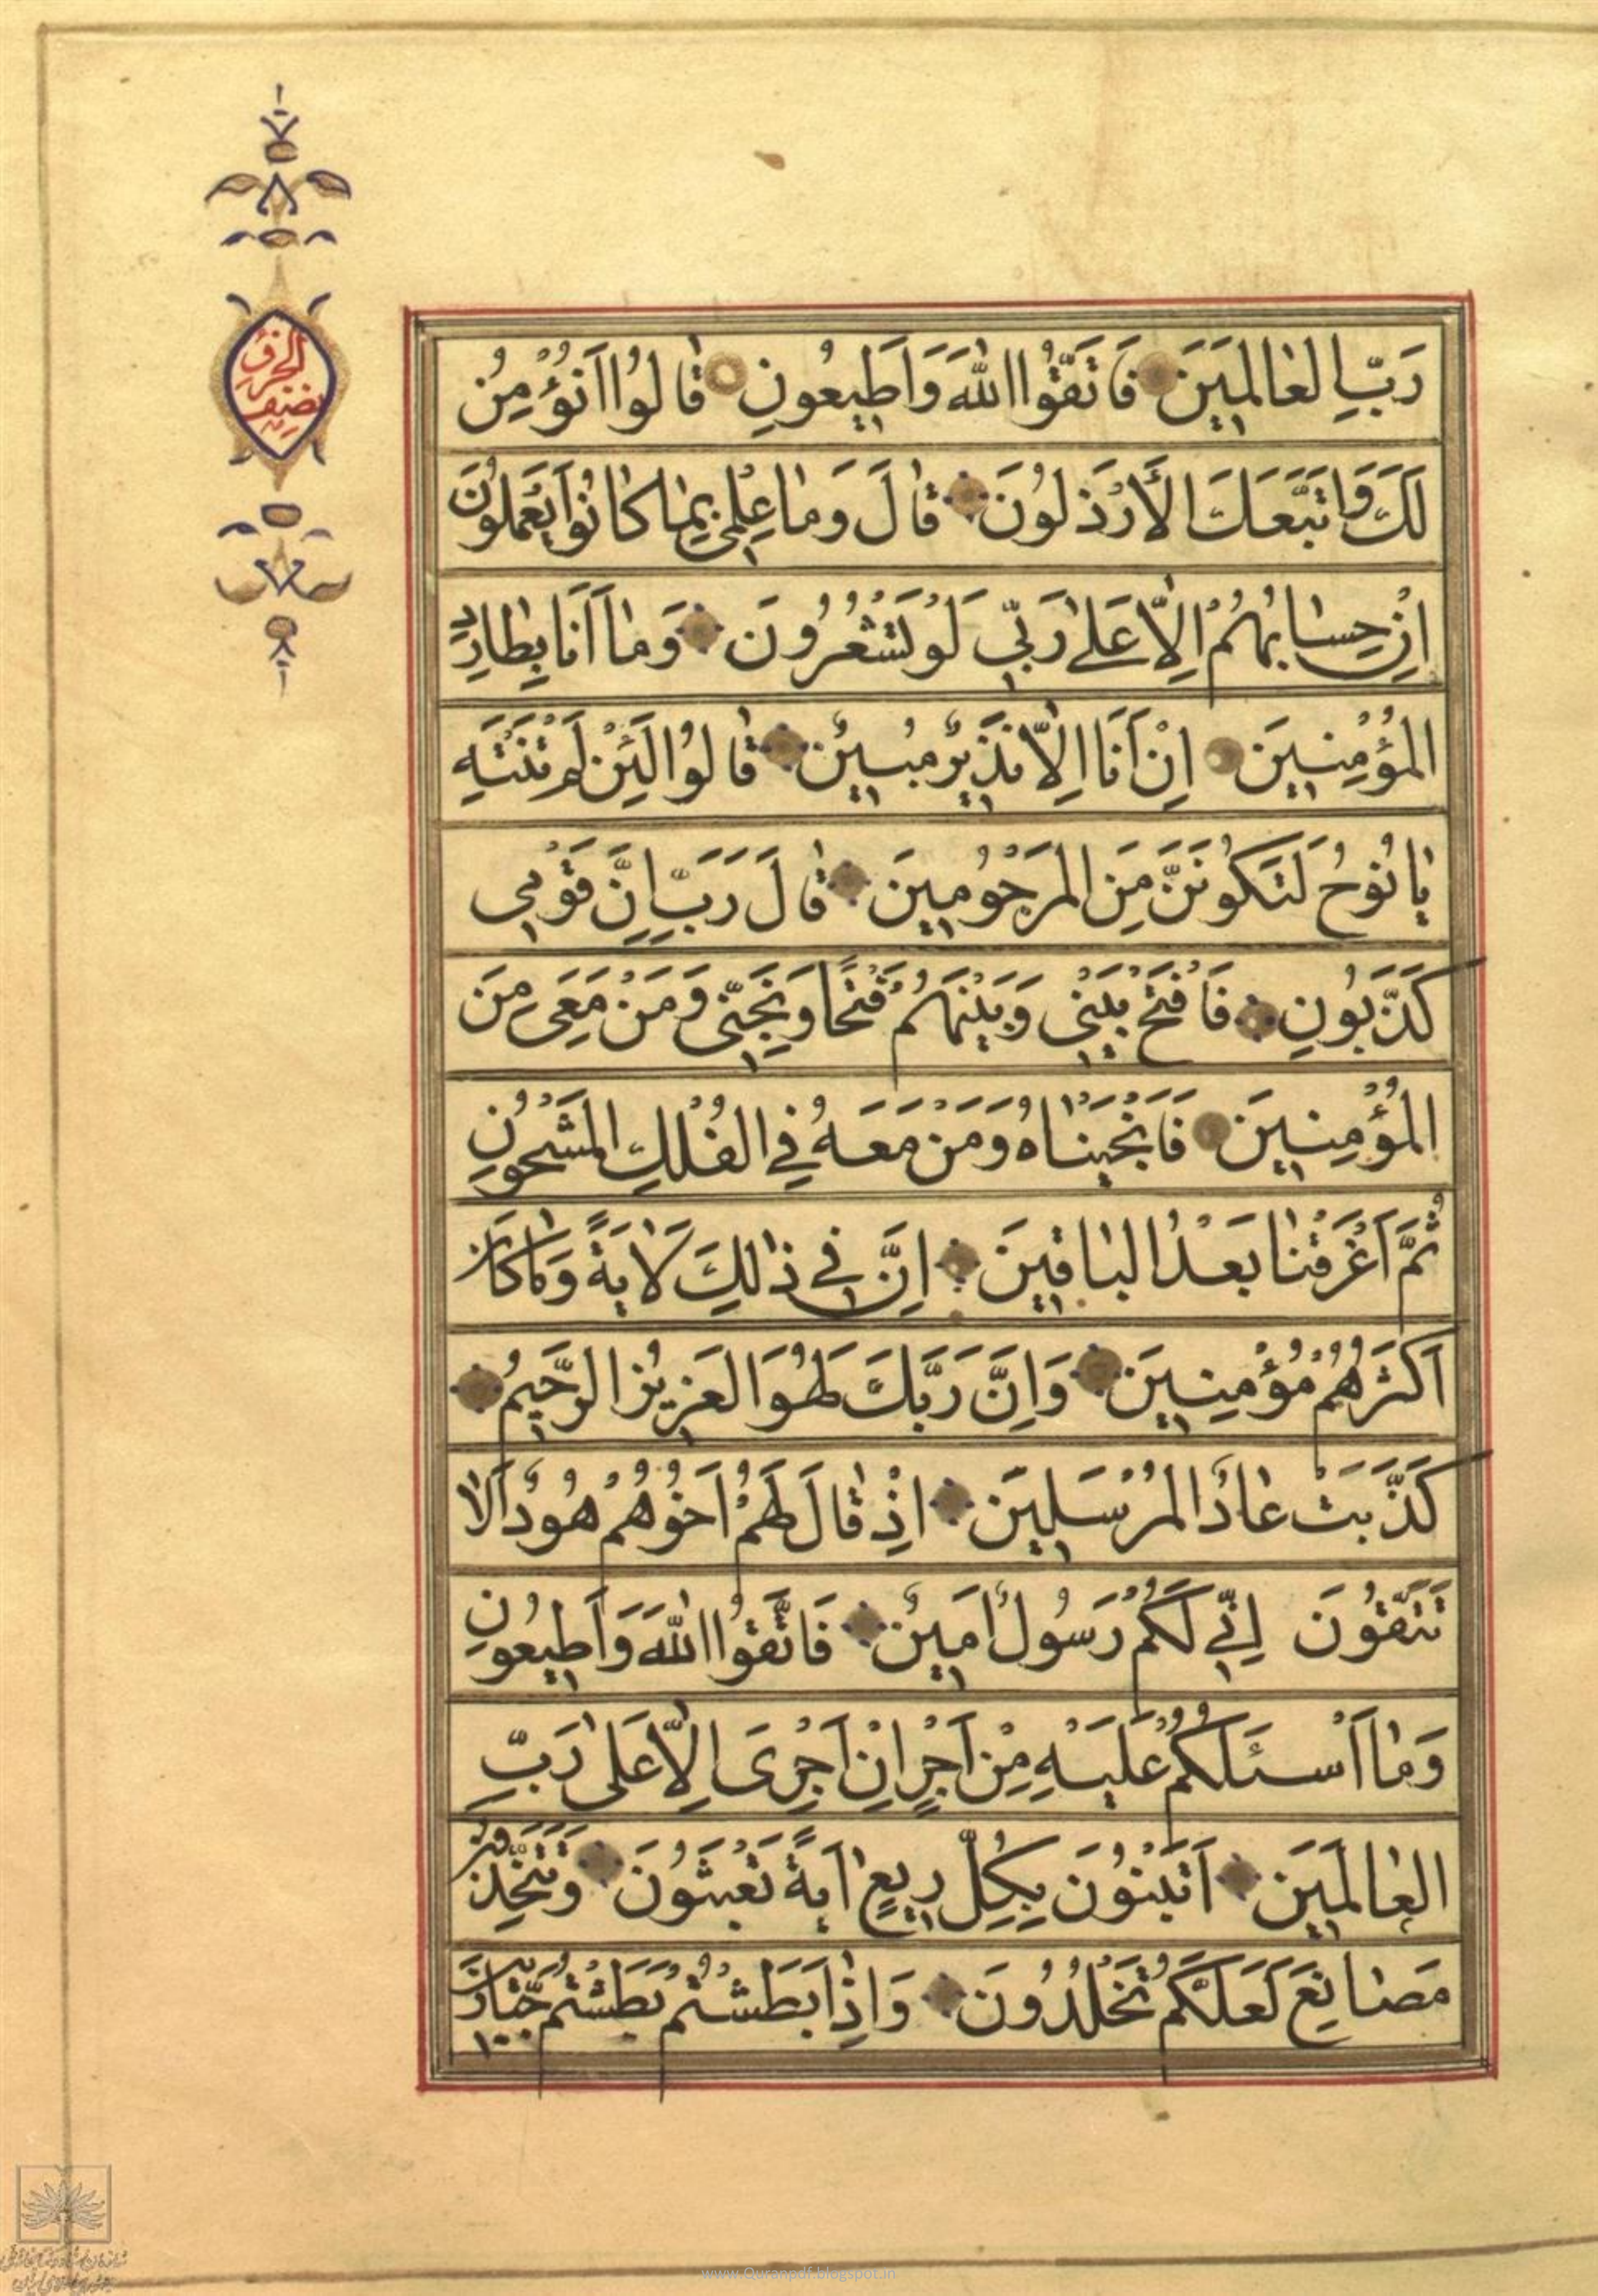 رَبِّ العٰالَمِينَ فَاتَّقُوا اللّٰهَ وَاَطِيعُونِ قٰالُوا اَنُؤْمِنُ
لَكَ وَاتَّبَعَكَ الْأَرْذَلُونَ قٰالَ وَمٰا عِلْمِي بِمٰا كٰانُوا يَعْمَلُونَ
اِنْ حِسٰابُهُمْ اِلّٰا عَلىٰ رَبِّي لَوْ تَشْعُرُونَ وَمٰا اَنَا بِطٰارِدِ
المُؤْمِنِينَ اِنْ اَنَا اِلّٰا نَذِيرٌ مُبِينٌ قٰالُوا لَئِنْ لَمْ تَنْتَهِ
يٰا نُوحُ لَتَكُونَنَّ مِنَ المَرْجُومِينَ قٰالَ رَبِّ اِنَّ قَوْمِي
كَذَّبُونِ فَافْتَحْ بَيْنِي وَبَيْنَهُمْ فَتْحًا وَنَجِّنِي وَمَنْ مَعِيَ مِنَ
المُؤْمِنِينَ فَاَنْجَيْنٰاهُ وَمَنْ مَعَهُ فِي الفُلْكِ المَشْحُونِ
ثُمَّ اَغْرَقْنٰا بَعْدُ البٰاقِينَ اِنَّ فِي ذٰلِكَ لَاٰيَةً وَمٰا كٰانَ
اَكْثَرُهُمْ مُؤْمِنِينَ وَاِنَّ رَبَّكَ لَهُوَ العَزِيزُ الرَّحِيمُ
كَذَّبَتْ عٰادٌ المُرْسَلِينَ اِذْ قٰالَ لَهُمْ اَخُوهُمْ هُودٌ اَلٰا
تَتَّقُونَ اِنِّي لَكُمْ رَسُولٌ اَمِينٌ فَاتَّقُوا اللّٰهَ وَاَطِيعُونِ
وَمٰا اَسْئَلُكُمْ عَلَيْهِ مِنْ اَجْرٍ اِنْ اَجْرِيَ اِلّٰا عَلىٰ رَبِّ
العٰالَمِينَ اَتَبْنُونَ بِكُلِّ رِيعٍ اٰيَةً تَعْبَثُونَ وَتَتَّخِذُونَ
مَصٰانِعَ لَعَلَّكُمْ تَخْلُدُونَ وَاِذٰا بَطَشْتُمْ بَطَشْتُمْ جَبّٰارِينَ
نصف
الحزب
www.Quranpdf.blogspot.in